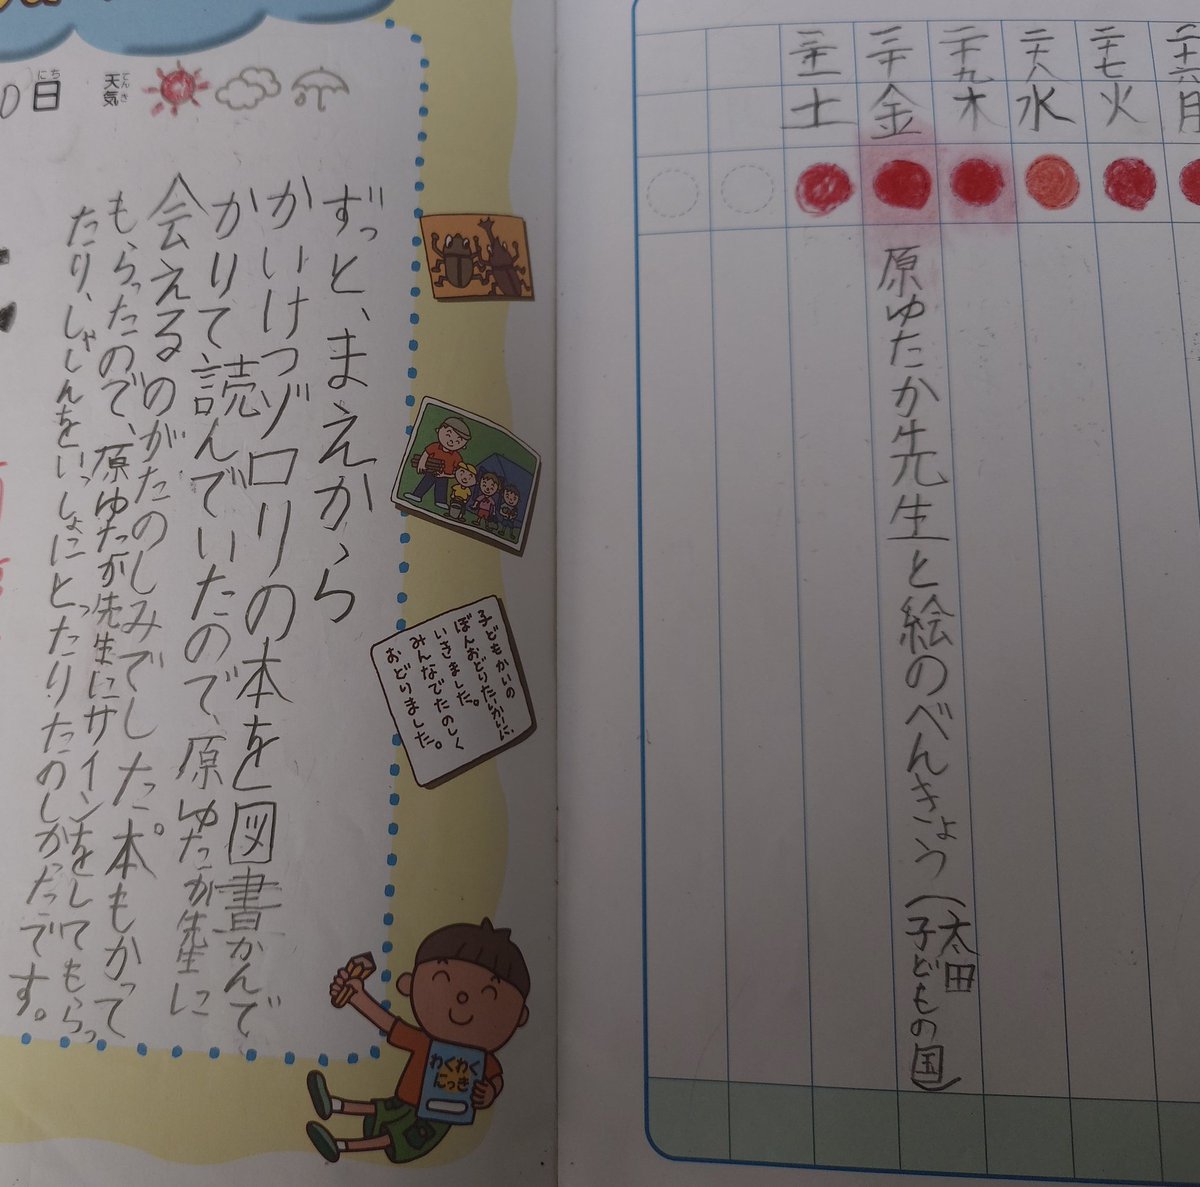 二十六
月
二十七
火
二十八
水
二十九
木
三十
金
原ゆたか先生と絵のべんきょう(太田
子どもの国)
三十一
土
天気
てんき
日
にち
ずっと、まえから
かいけつゾロリの本を図書かんで
かりて、読んでいたので、原ゆたか先生に
会えるのがたのしみでした。本もかって
もらったので、原ゆたか先生にサインをしてもらっ
たり、しゃしんをいっしょにとったりたのしかったです。
子どもかいの
ぼんおどりたいかいに、
いきました。
みんなでたのしく
おどりました。
わくわく
にっき